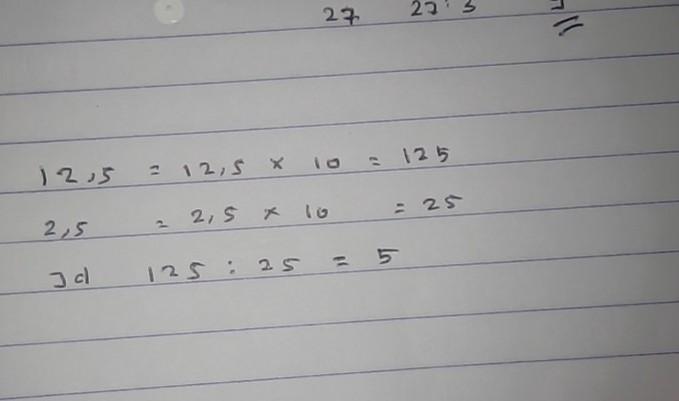 27 27:3
12,5 = 12,5 × 10 = 125
2,5 = 2,5 × 10 = 25
Jd 125 : 25 = 5